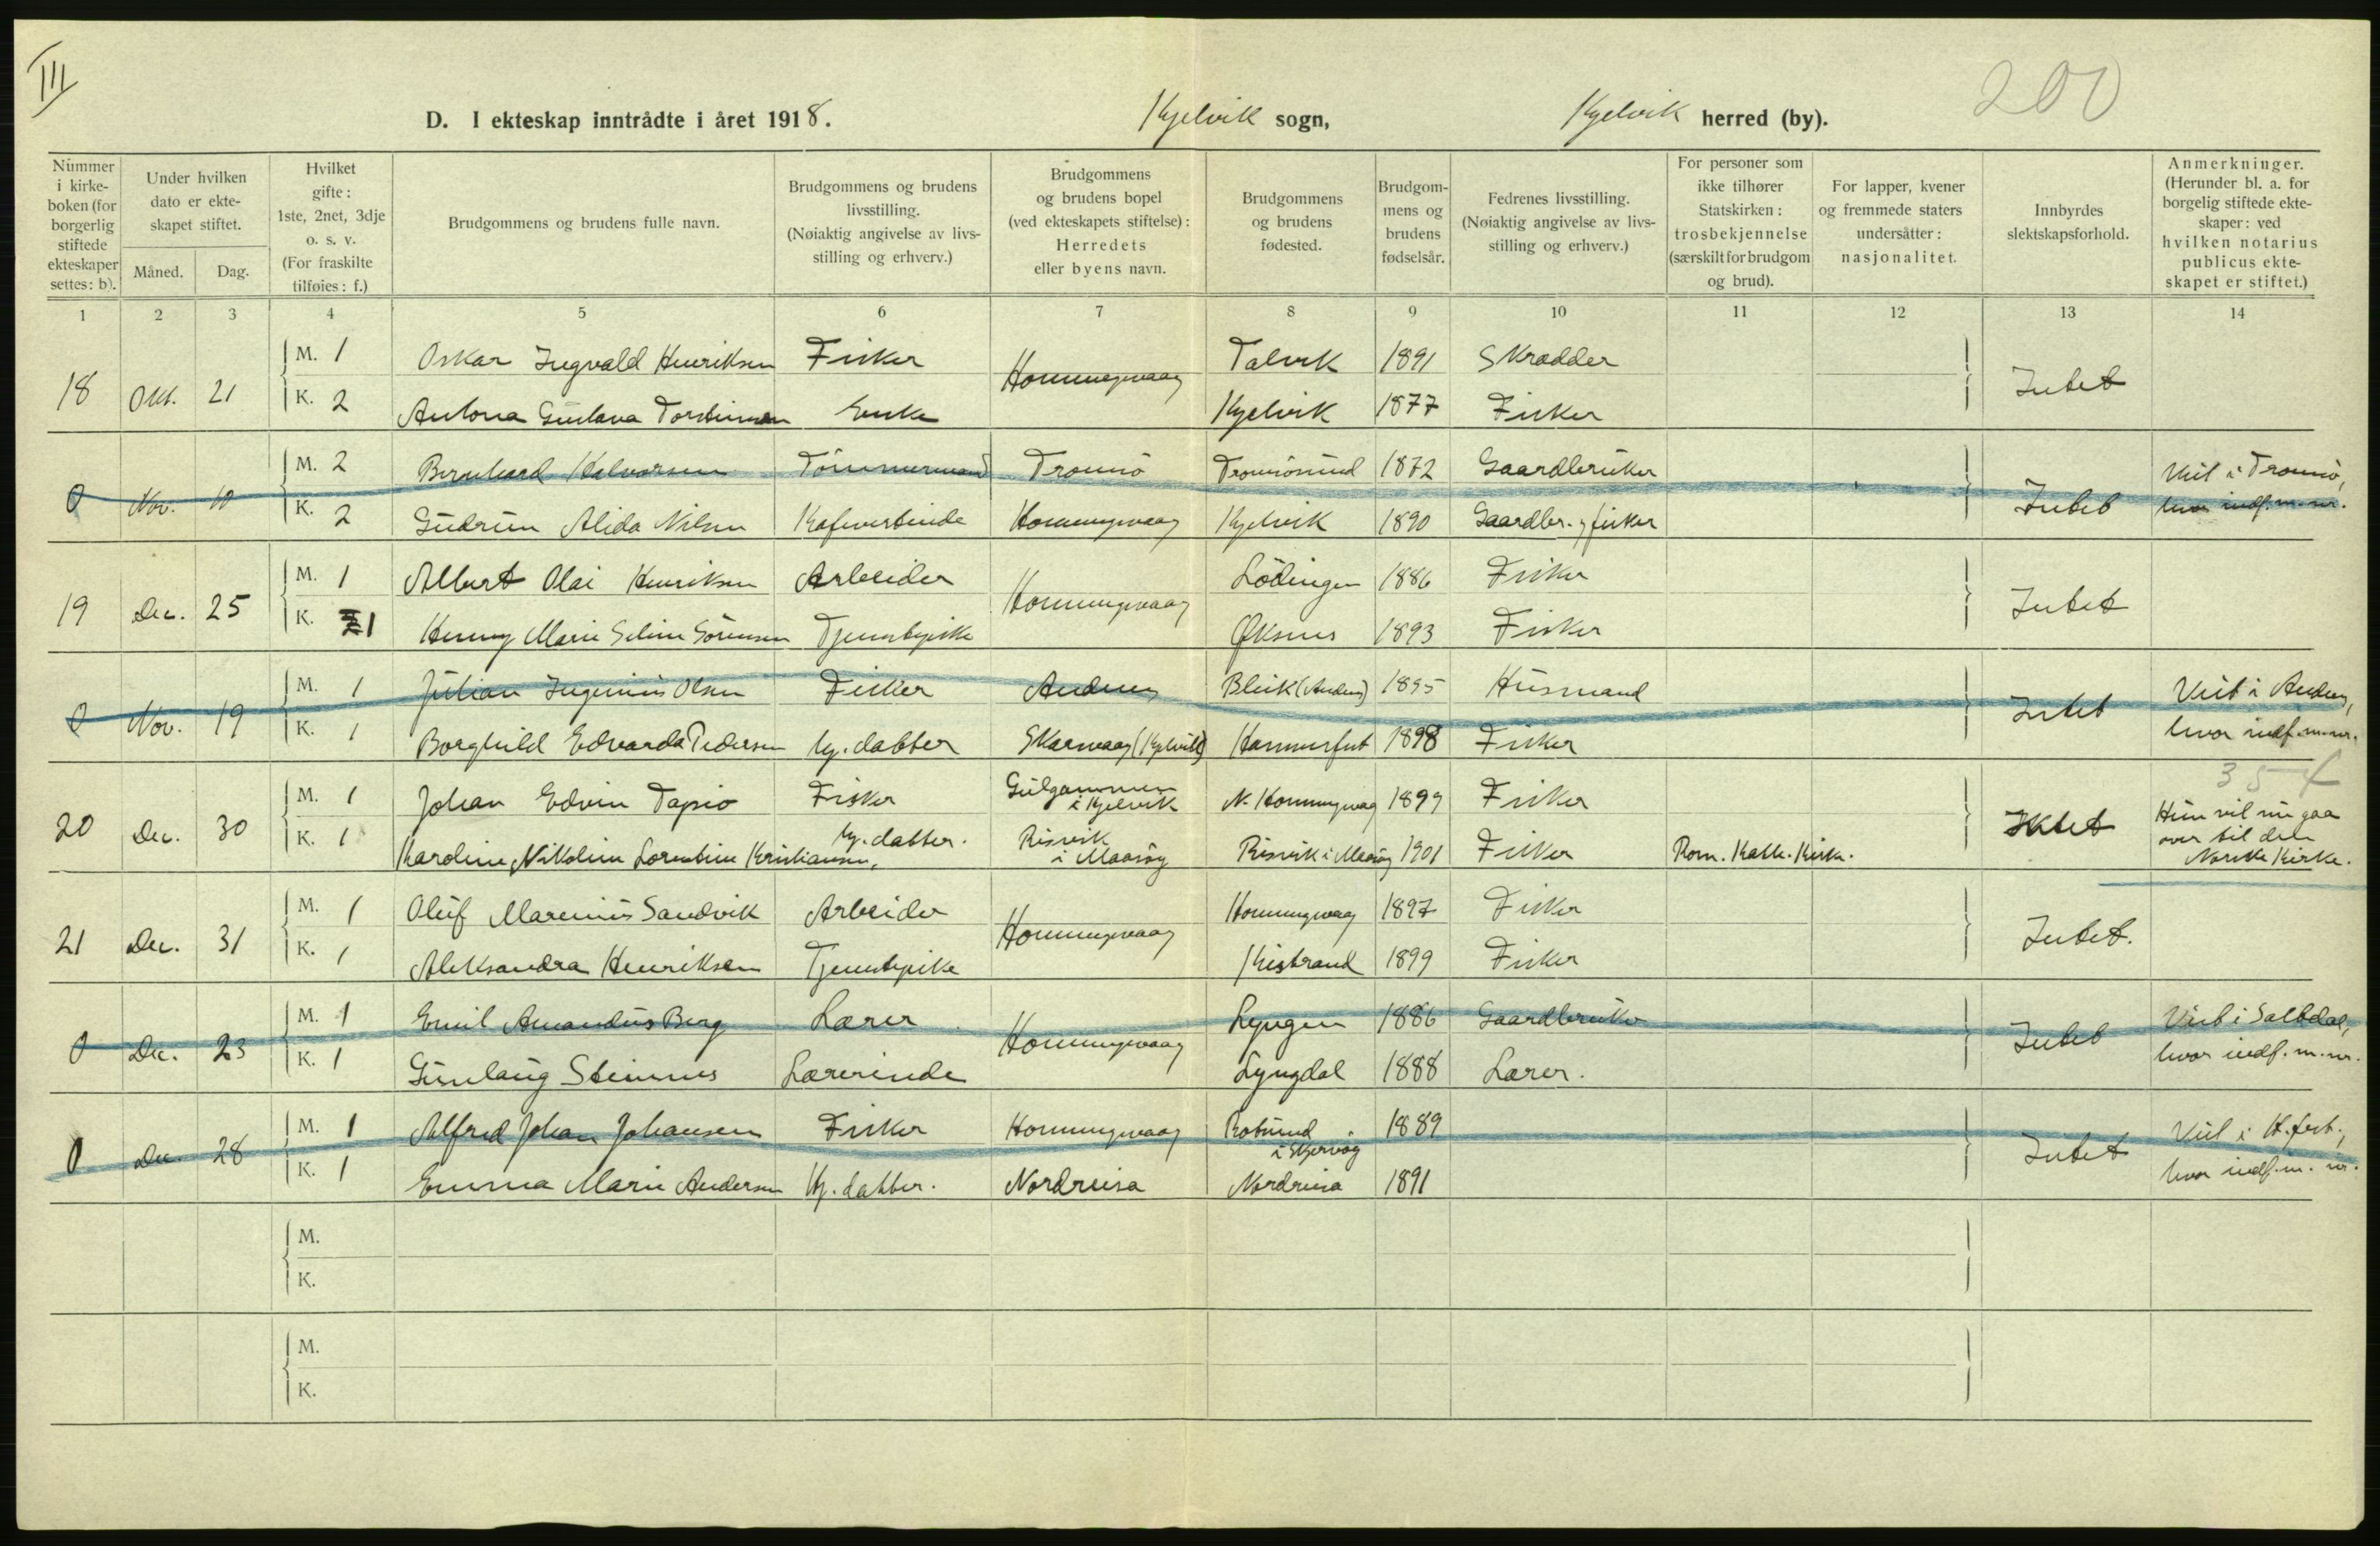 III
200
D. I ekteskap inntrådte i året 1918. Kjelvik sogn, Kjelvik herred (by).
Nummer i kirke- boken (for borgerlig stiftede ekteskaper settes: b).
Under hvilken dato er ekte- skapet stiftet.
Måned. Dag.
Hvilket gifte: 1ste, 2net, 3dje o. s. v. (For fraskilte tilføies: f.)
Brudgommens og brudens fulle navn.
Brudgommens og brudens livsstilling. (Nøiaktig angivelse av livs- stilling og erhverv.)
Brudgommens og brudens bopel (ved ekteskapets stiftelse): Herredets eller byens navn.
Brudgommens og brudens fødested.
Brudgom- mens og brudens fødselsår.
Fedrenes livsstilling. (Nøiaktig angivelse av livs- stilling og erhverv.)
For personer som ikke tilhører Statskirken: trosbekjennelse (særskilt for brudgom og brud).
For lapper, kvener og fremmede staters undersåtter: nasjonalitet.
Innbyrdes slektskapsforhold.
Anmerkninger. (Herunder bl. a. for borgelig stiftede ekte- skaper: ved hvilken notarius publicus ekte- skapet er stiftet.)
1 2 3 4 5 6 7 8 9 10 11 12 13 14
M. 1 Oskar Ingvald Henriksen Fisker Talvik 1891 Skrædder
18 Okt. 21 Honningvaag Intet
K. 2 Antona Gustava Enke Kjelvik 1877 Fisker
M. 2 Bernhard Halvorsen Tömmermand Tromsö Tromsösund 1872 Gaardbruker Viet i Tromsö,
0 Nov. 10 Intet hvor indf. m. nr.
K. 2 Gudrun Alida Nilsen Kafevertinde Honningvaag Kjelvik 1890 Gaardbr. og fisker
M. 1 Albert Olai Henriksen Arbeider Lödingen 1886 Fisker
19 Dec. 25 Honningvaag Intet
K. 1 Henny Marie Seline Sörensen Tjenestepike Øksnes 1893 Fisker
M. 1 Julian Ingenius Olsen Fisker Andenes Bleik (Andenes) 1895 Husmand Viet i Andenes,
0 Nov. 19 Intet hvor indf. m. nr.
K. 1 Borghild Edvarda Pedersen hj. datter Skarsvaag (Kjelvik) Hammerfest 1898 Fisker
354
M. 1 Johan Edvin Tapio Fisker Gulgammen i Kjelvik N. Honningvaag 1899 Fisker
20 Dec. 30 Intet Hun vil nu gaa over til den Norske Kirke.
K. 1 Karoline Nikoline Lorentine Kristiansen, hj. datter. Risvik i Maasöy Risvik i Maasöy 1901 Fisker Rom. Kath. Kirke.
M. 1 Oluf Marenius Sandvik Arbeider Honningvaag 1897 Fisker
21 Dec. 31 Honningvaag Intet.
K. 1 Aleksandra Henriksen Tjenestepike Kistrand 1899 Fisker
M. 1 Emil Amandus Berg Lærer Lyngen 1886 Gaardbruker Viet i Saltdal,
0 Dec. 23 Honningvaag Intet hvor indf. m. nr.
K. 1 Gunlaug Steinnes Lærerinde Lyngdal 1888 Lærer.
M. 1 Alfred Johan Johansen Fisker Honningvaag Rotsund i Skjervöy 1889 Viet i H.fest.,
0 Dec. 28 Intet hvor indf. m. nr.
K. 1 Emma Marie Andersen Hj. datter. Nordreisa Nordreisa 1891
M.
K.
M.
K.